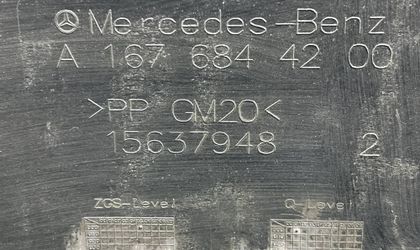 Mercedes-Benz
A 167 684 42 00
>PP GM20<
15637948 2
ZGS-Level Q-Level